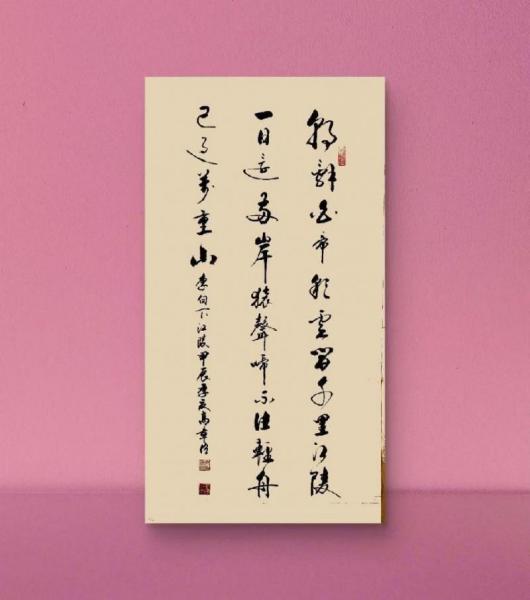 朝辭白帝彩雲間千里江陵
一日還兩岸猿聲啼不住輕舟
已過萬重山
李白下江陵甲辰季夏高